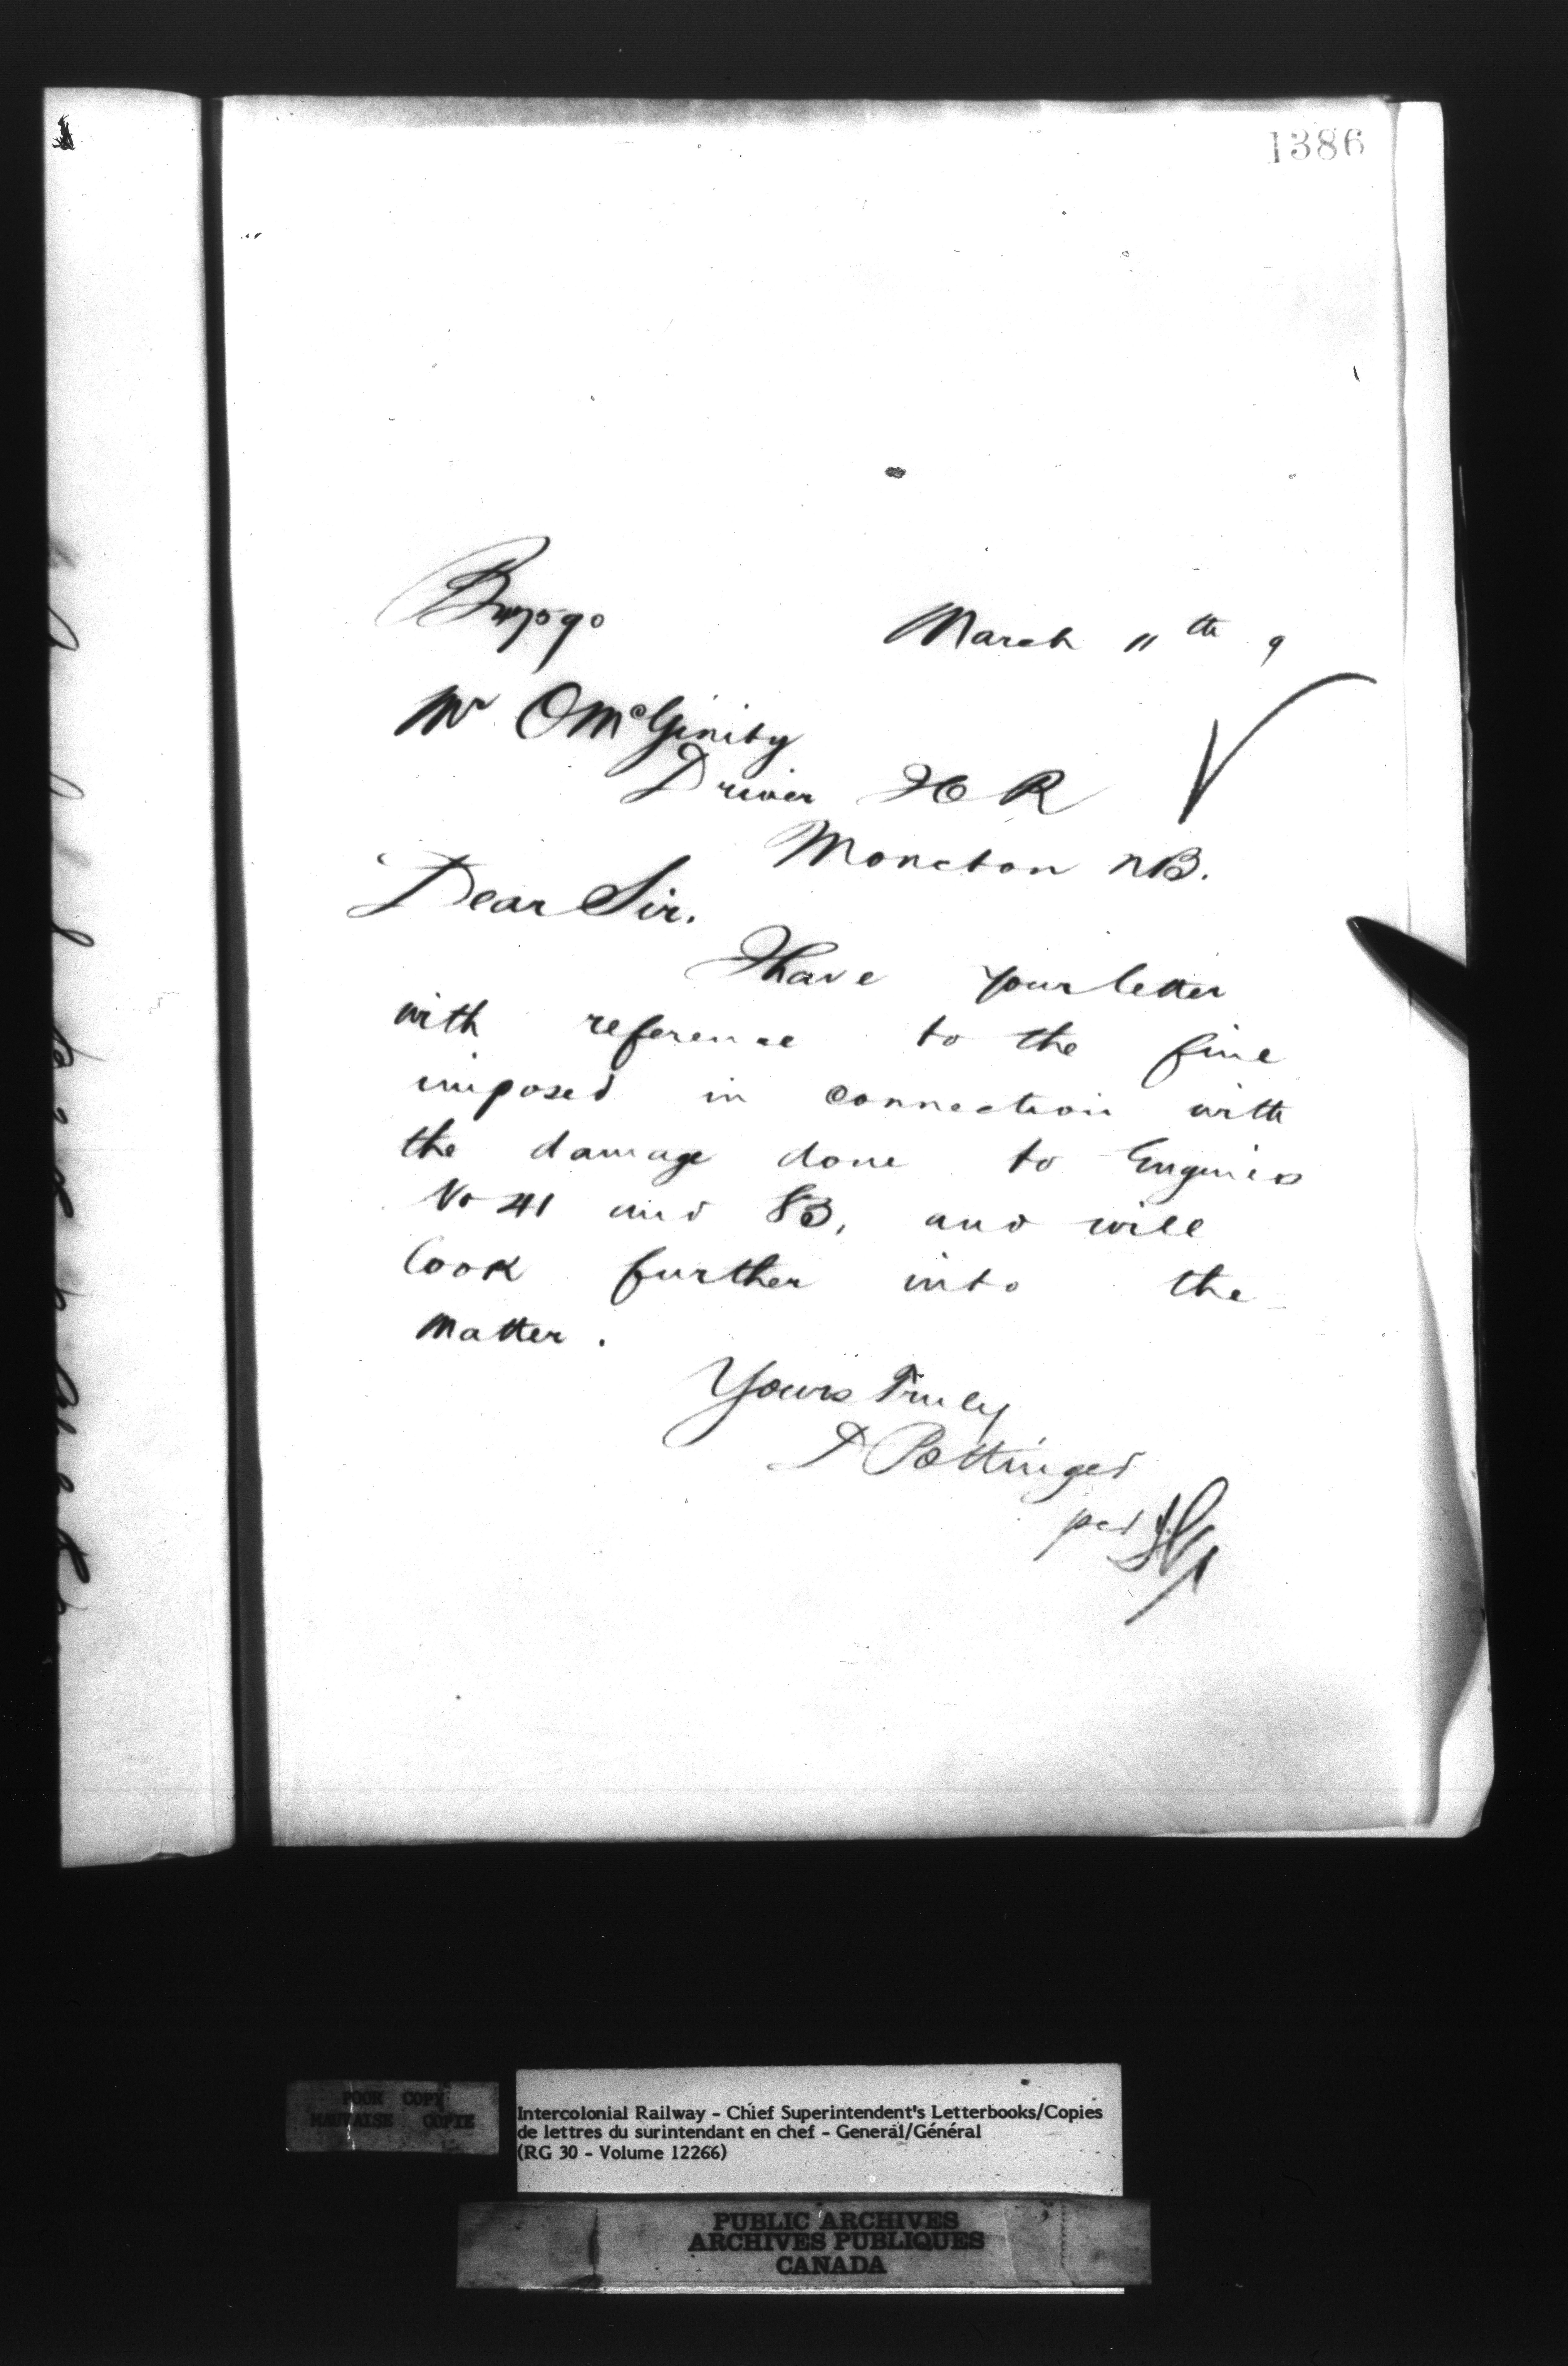 1386
March 11th 9
Mr O McGinity
Driver I C R
Moncton NB.
Dear Sir.
I have your letter
with reference to the fine
imposed in connection with
the damage done to Engines
No 41 and 83, and will
look further into the
matter.
Yours Truly
D Pottinger
per
POOR COPY
MAUVAISE COPIE
Intercolonial Railway - Chief Superintendent's Letterbooks/Copies
de lettres du surintendant en chef - General/Général
(RG 30 - Volume 12266)
PUBLIC ARCHIVES
ARCHIVES PUBLIQUES
CANADA